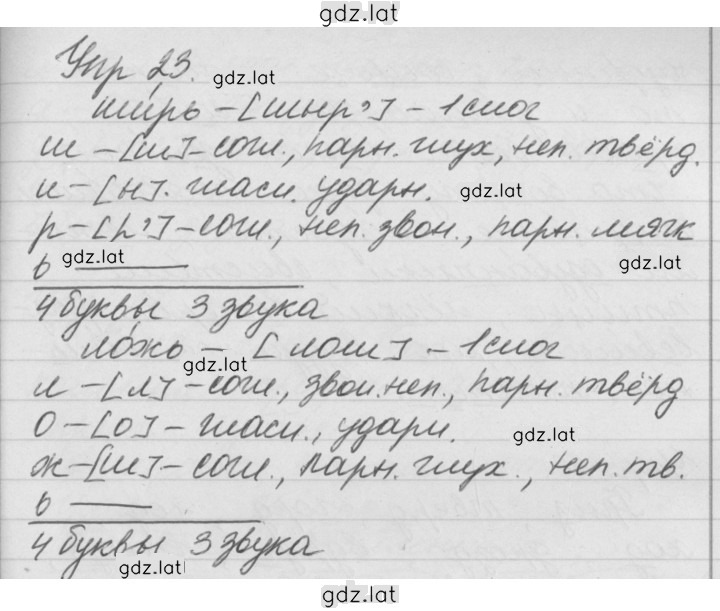 gdz.lat
Упр 23.
gdz.lat
ши́рь – [шыр'] – 1 слог
ш – [ш] – согл., парн. глух, неп. твёрд.
и – [ы]. гласн. ударн.
gdz.lat
р – [р'] – согл., неп. звон., парн. мягк
ь ———
gdz.lat
gdz.lat
4 буквы 3 звука
ло́жь – [лош] – 1 слог
gdz.lat
л – [л] – согл., звон. неп., парн. твёрд
О – [о] – гласн., ударн.
gdz.lat
ж – [ш] – согл., парн. глух., неп. тв.
ь ——
4 буквы 3 звука
gdz.lat
gdz.lat